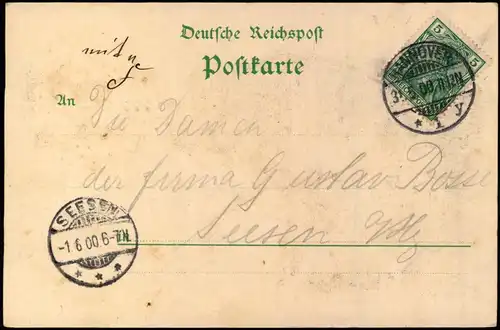 Deutsche Reichspost
Postkarte
An
Die Damen
der firma Gustav Bosse
Seesen
5 5
HANNOVER
* 1 y
SEESEN
-1.6.00.6-7N.
* * *